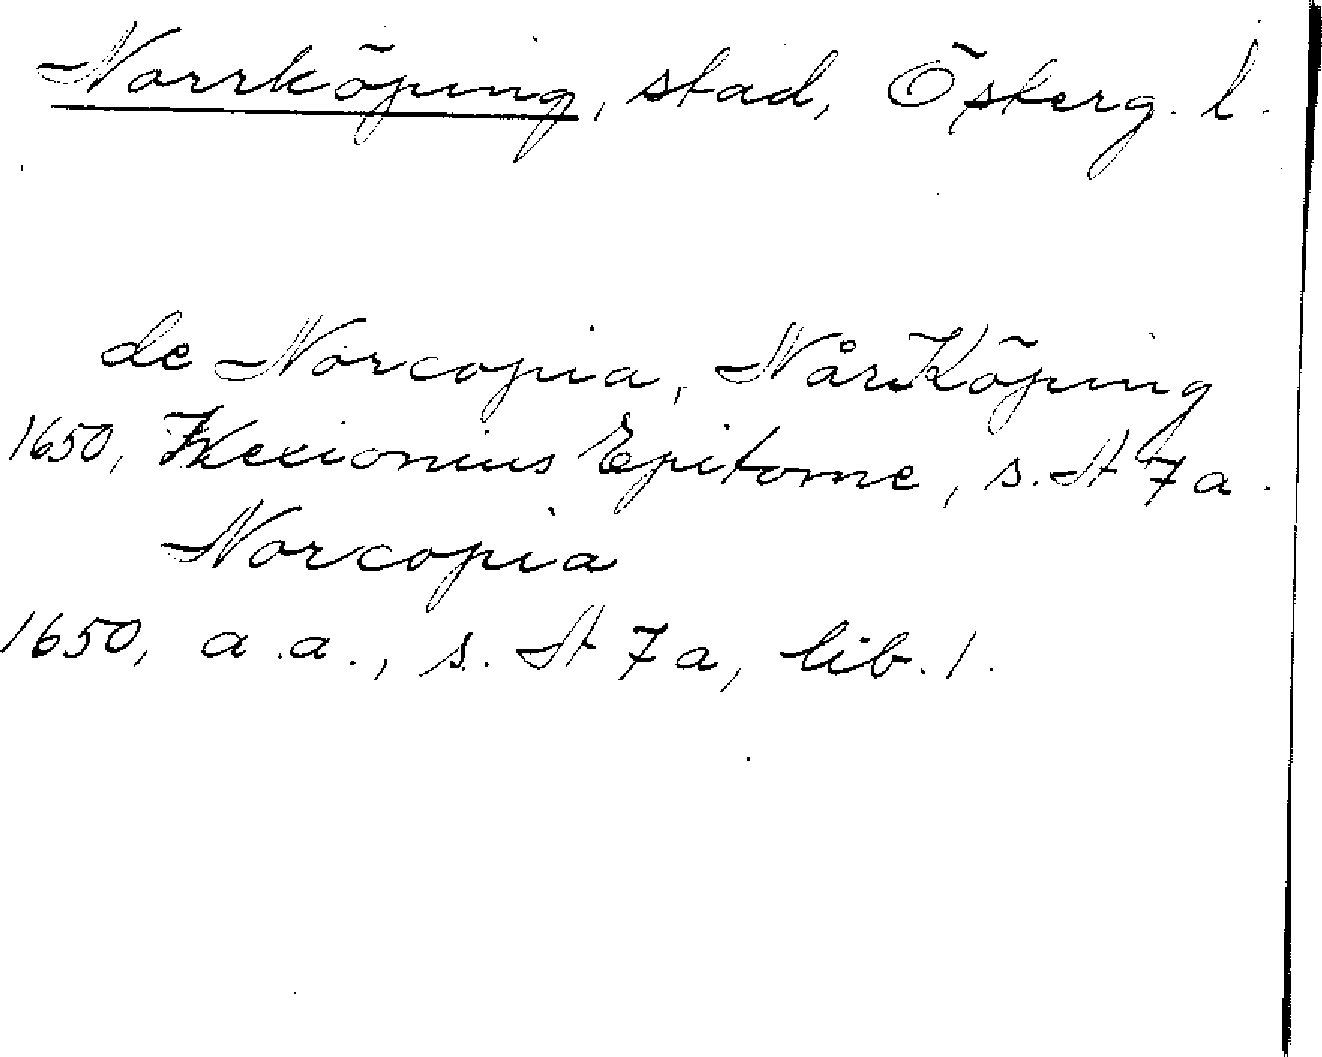 Norrköping, stad, Österg. l.
de Norcopia, NårKöping
1650, Wexionius Epitome, s. St 7 a.
Norcopia
1650, a.a., s. St 7 a, lib. 1.